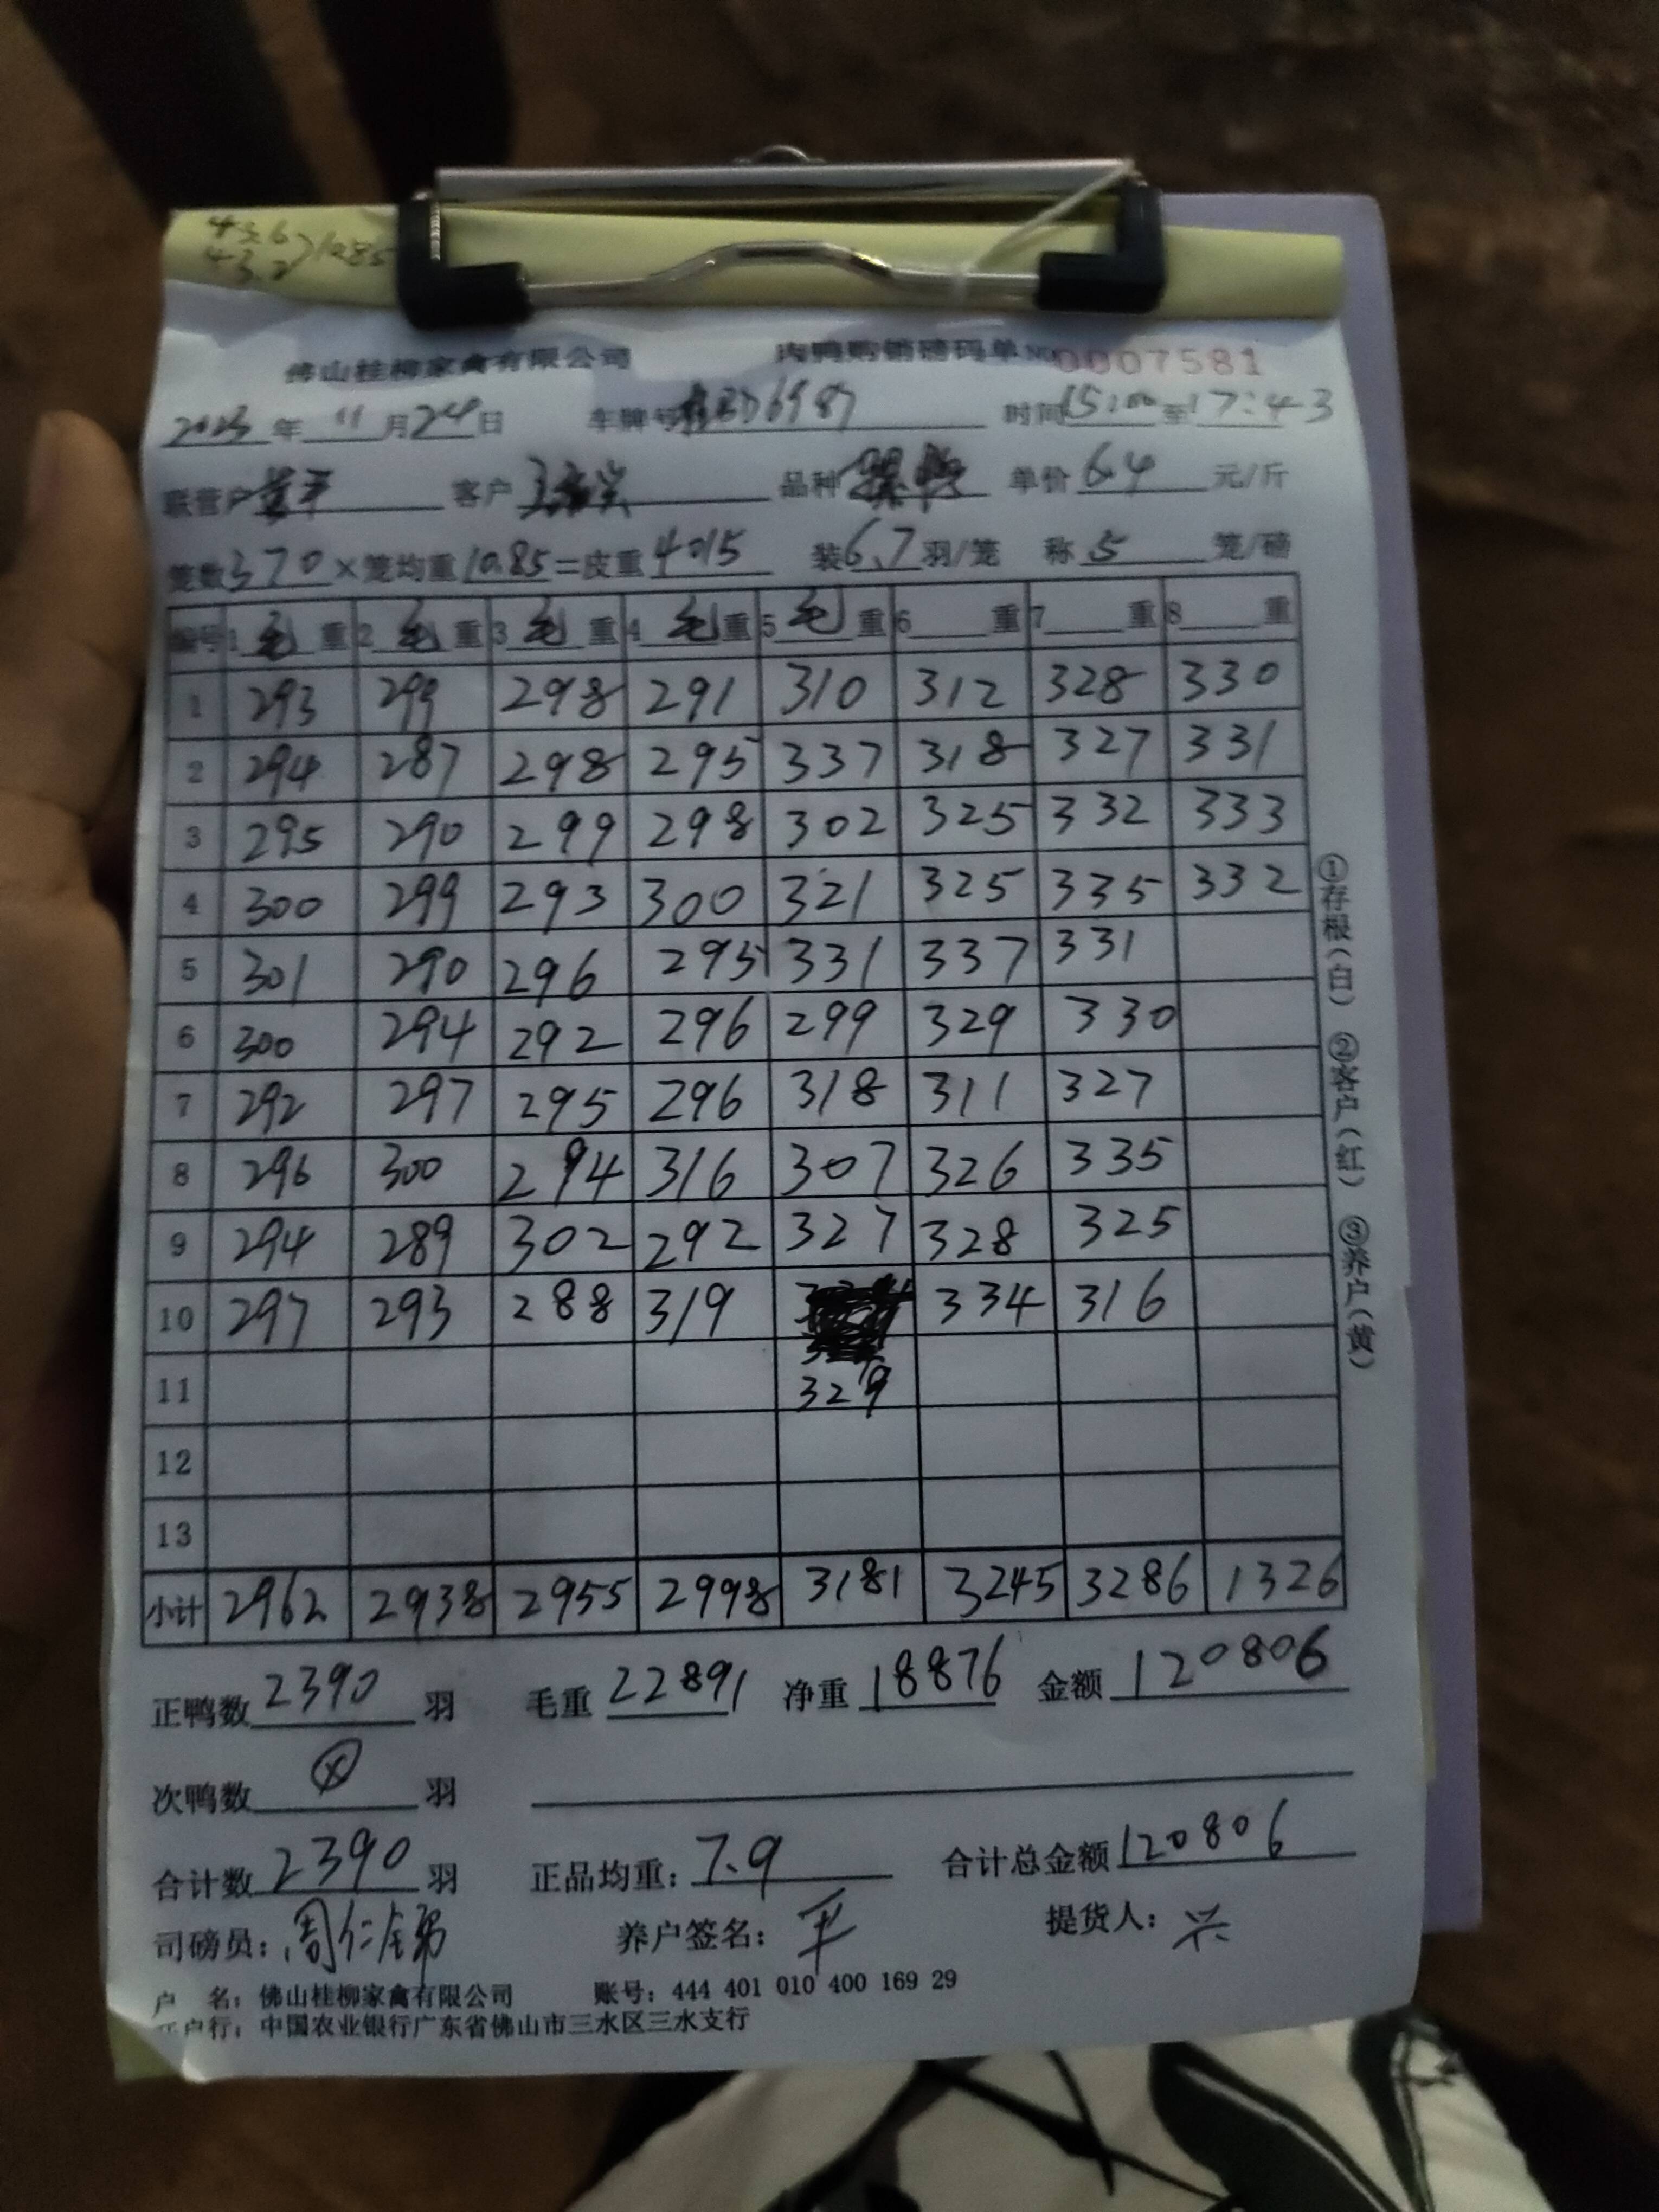 43.6
43.2 10.85
佛山桂柳家禽有限公司 肉鸭购销磅码单 No 0007581
2023年 11月24日 车牌号 D6987 时间15:00至17:43
联营户 黄平 客户 品种 单价6.4元/斤
笼数370×笼均重10.85=皮重4015 装6.7羽/笼 称5笼/磅
编号 1毛重 2毛重 3毛重 4毛重 5毛重 6重 7重 8重
1 293 299 298 291 310 312 328 330
2 294 287 298 295 337 318 327 331
3 295 290 299 298 302 325 332 333
4 300 299 293 300 321 325 335 332
5 301 290 296 295 331 337 331
6 300 294 292 296 299 329 330
7 292 297 295 296 318 311 327
8 296 300 294 316 307 326 335
9 294 289 302 292 327 328 325
10 297 293 288 319 334 316
11 329
12
13
小计 2962 2938 2955 2998 3181 3245 3286 1326
正鸭数2390羽 毛重22891 净重18876 金额120806
次鸭数 羽
合计数2390羽 正品均重：7.9 合计总金额120806
司磅员：周仁 养户签名：平 提货人：兴
户 名：佛山桂柳家禽有限公司 账号：444 401 010 400 169 29
开户行：中国农业银行广东省佛山市三水区三水支行
①存根（白） ②客户（红） ③养户（黄）